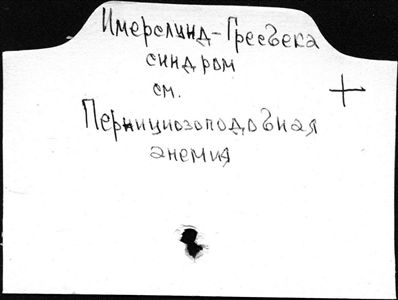 Имерслунд-Гресбека
синдром
см.
Пернициозоподобная
анемия